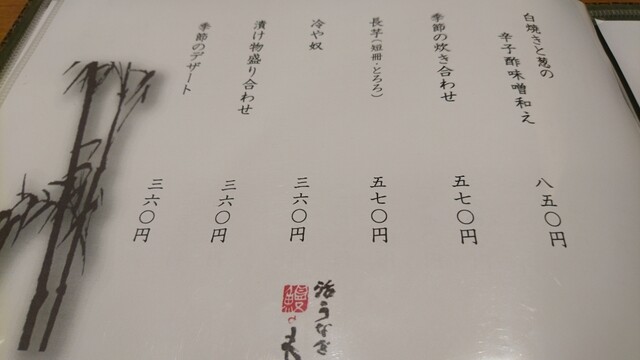 白焼きと葱の
辛子酢味噌和え
八五〇円
季節の炊き合わせ
五七〇円
長芋(短冊・とろろ)
五七〇円
冷や奴
三六〇円
漬け物盛り合わせ
三六〇円
季節のデザート
三六〇円
活うなぎ